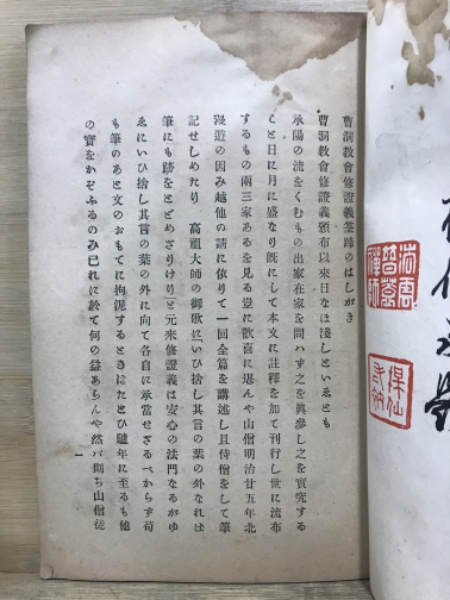 曹洞教會修證義筌蹄のはしがき
曹洞教會修證義頒布以來日なほ淺しといゑとも
承陽の流をくむもの出家在家を問ハず之を眞參し之を實究する
こと日に月に盛なり旣にして本文に註釋を加て刊行し世に流布
するもの兩三家あるを見る豈に歡喜に堪んや山僧明治廿五年北
漫遊の因み越他の請に依りて一回全篇を講述し且侍僧をして筆
記せしめたり 高祖大師の御歌に「いひ捨し其言の葉の外なれは
筆にも跡をとどめざりけり」と元來修證義は安心の法門なるがゆ
ゑにいひ捨し其言の葉の外に向て各自に承當せざるべからず苟
も筆のあと文のおもてに拘泥するときはたとひ驢年に至るも他
の寶をかぞふるのみ已れに於て何の益あらんや然バ則ち山僧徒
一